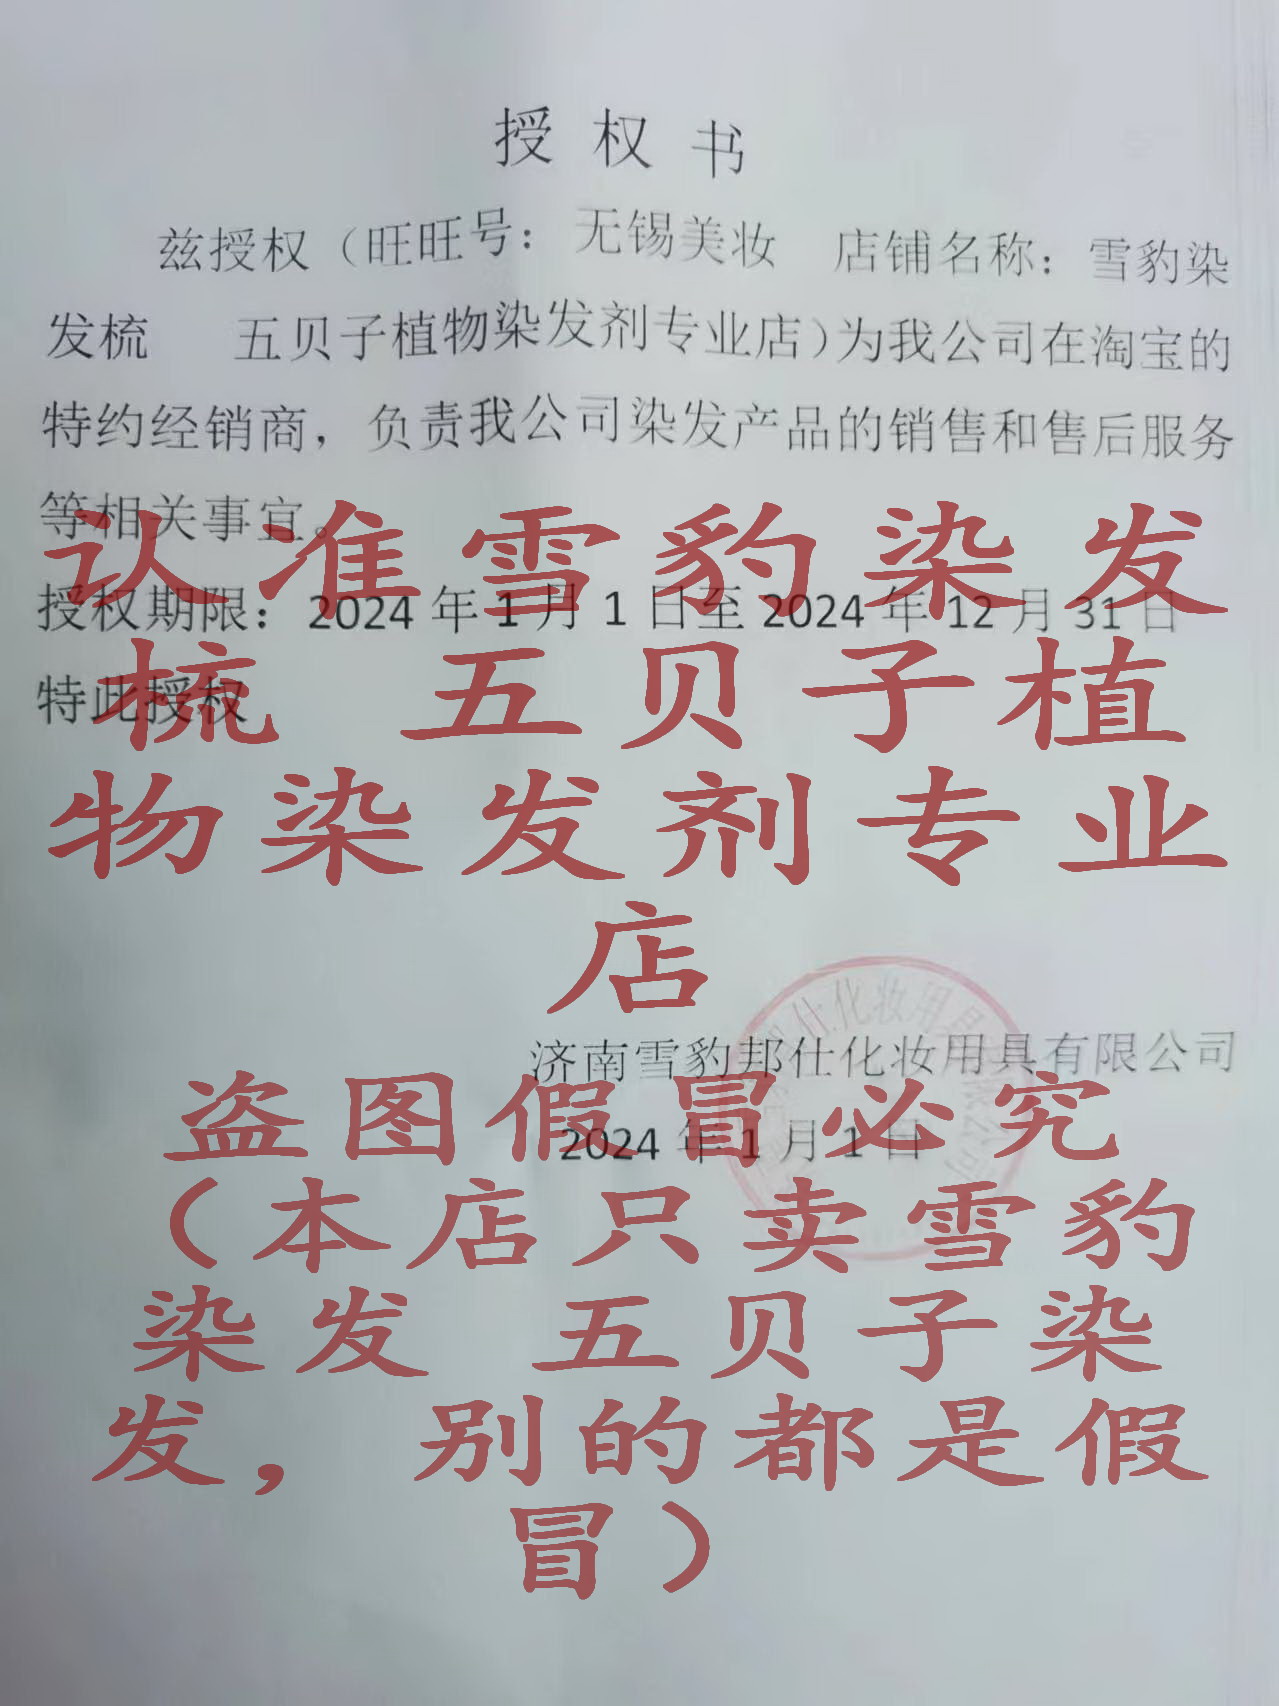 授权书
兹授权（旺旺号：无锡美妆 店铺名称：雪豹染
发梳 五贝子植物染发剂专业店）为我公司在淘宝的
特约经销商，负责我公司染发产品的销售和售后服务
等相关事宜。
授权期限：2024年1月1日至2024年12月31日
特此授权
济南雪豹邦仕化妆用具有限公司
2024年1月1日
认准雪豹染发
梳 五贝子植
物染发剂专业
店
盗图假冒必究
（本店只卖雪豹
染发 五贝子染
发，别的都是假
冒）